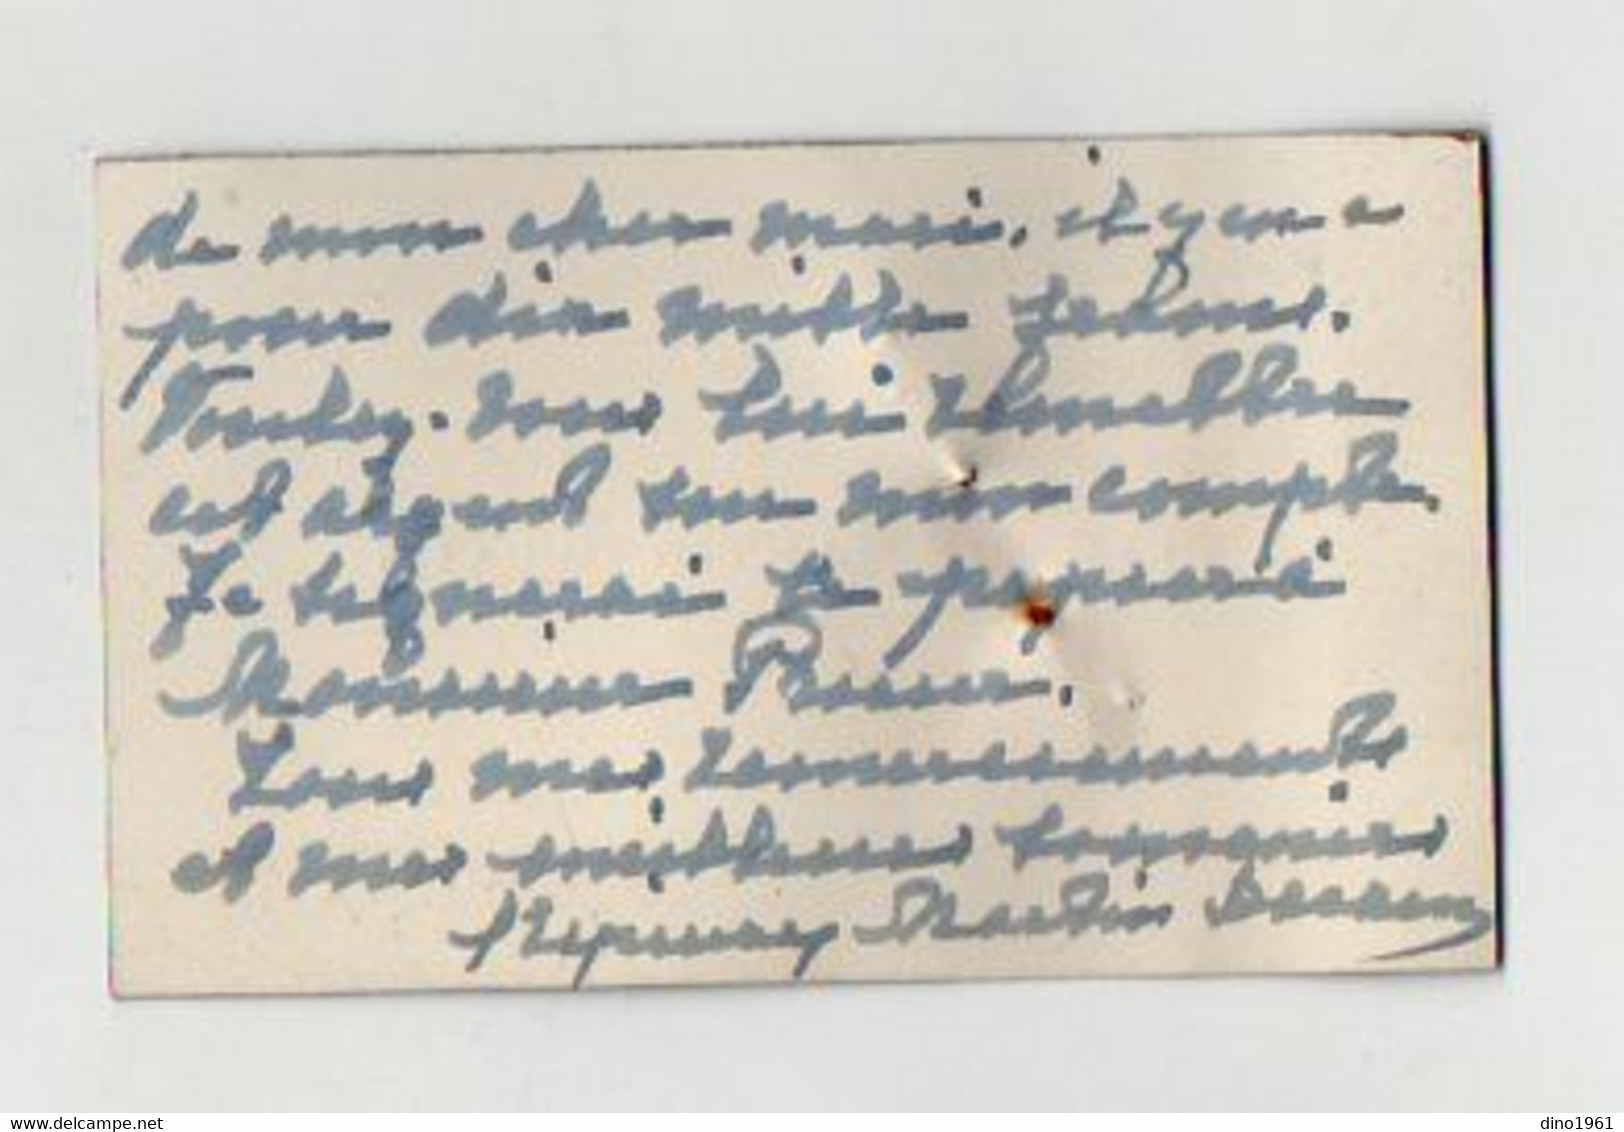 de mon cher mari, il y en a
pour dix mille francs.
Voulez-vous lui remettre
cet argent sur mon compte.
Je signerai le papier à
Monsieur
Tous mes remerciements
et mes meilleurs
Martin
www.delcampe.net
dino1961